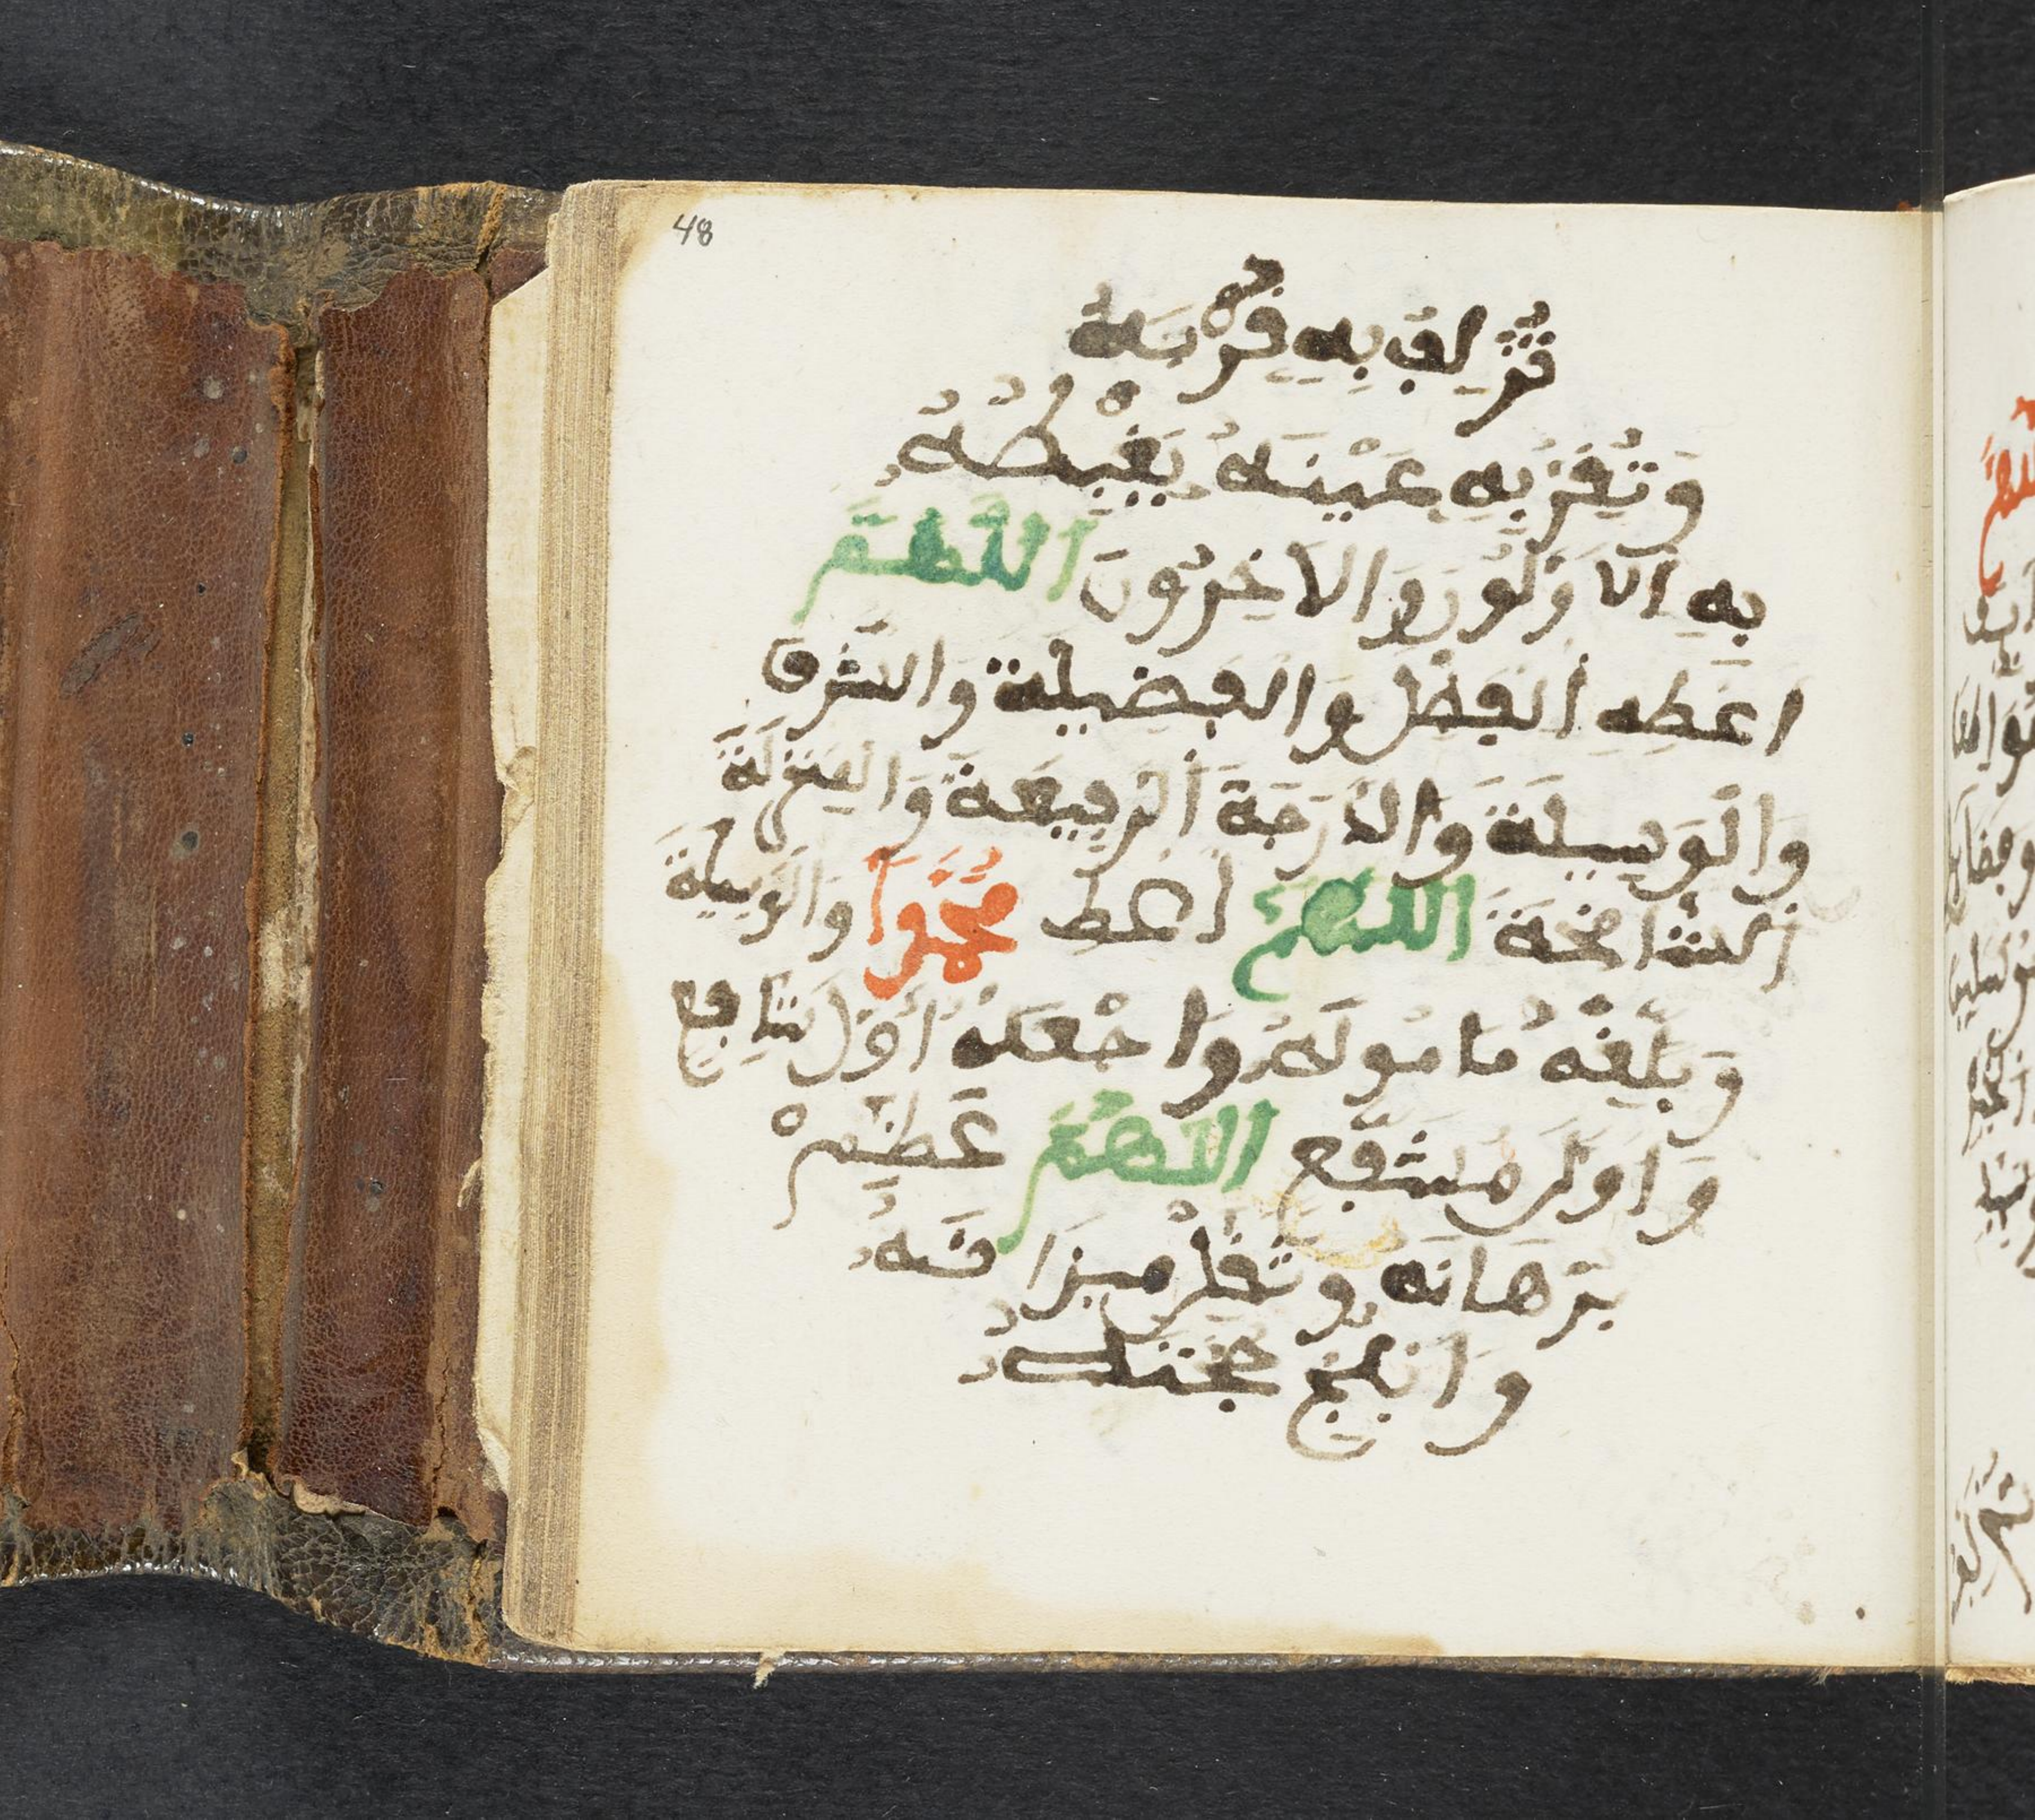 48
تُزْلِفُ بِهِ قُرْبَهُ
وَتُقِرُّ بِهِ عَيْنَهُ يَغْبِطُهُ
بِهِ الَاوَلُونَ وَالَاخِرُونَ اللَّهُمَّ
اعْطِهِ الْفَضْلَ وَالْفَضِيلَة وَالشَّرَفَ
وَالْوَسِيلَةَ وَالدَّرَجَةَ الرَّفِيعَةَ وَالْمَنْزِلَةَ
الشَّامِخَةَ اللَّهُمَّ اعْطِ مُحَمَّدًا الْوَسِيلَةَ
وَبَلِّغْهُ مَامُولَهُ وَاجْعَلْهُ أَوَّلَ شَافِعٍ
وَاوَّلَ مُشَفَّعٍ اللَّهُمَّ عَظِّمْ
بُرْهَانَهُ وَثَقِّلْ مِيزَانَهُ
وَابْلِجْ حُجَّتَهُ